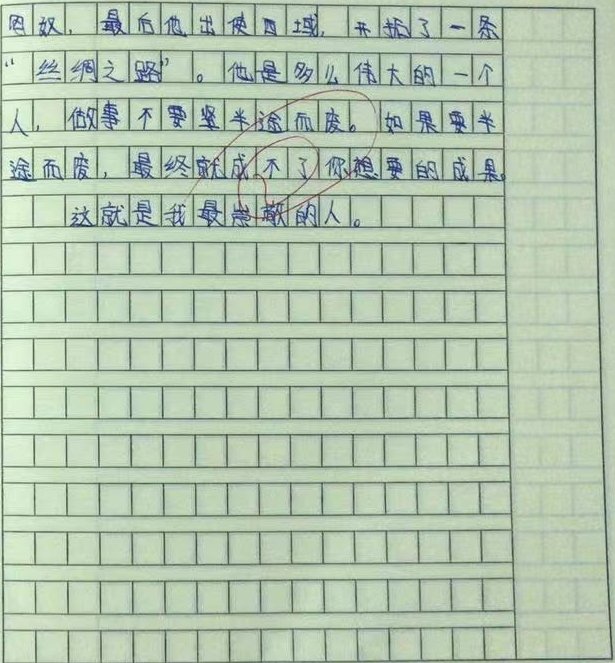 匈奴，最后他出使西域，开拓了一条
“丝绸之路”。他是多么伟大的一个
人，做事不要坚半途而废。如果要半
途而废，最终就成不了你想要的成果。
这就是我最崇敬的人。